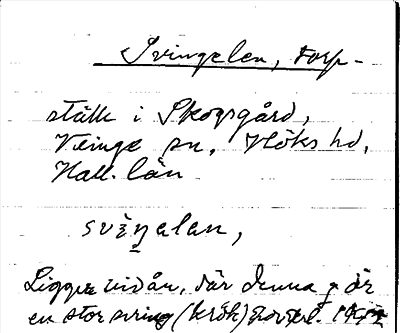 Svingelen, torp-
ställe i Skogsgård,
Veinge sn, Höks hd,
Hall. län
svìŋelan,
Ligger vid ån, där denna gör
en stor sving (krök)